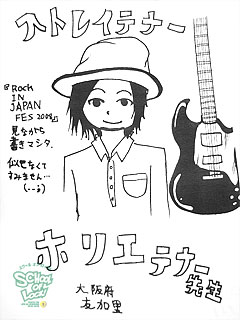 ストレイテナー
『ROCK
IN
JAPAN
FES 2008』
見ながら
書きマシタ。
似せなくて
すみません…
ホリエテナー
先生
SCHOOL
OF
LOCK!
大阪府
友加里